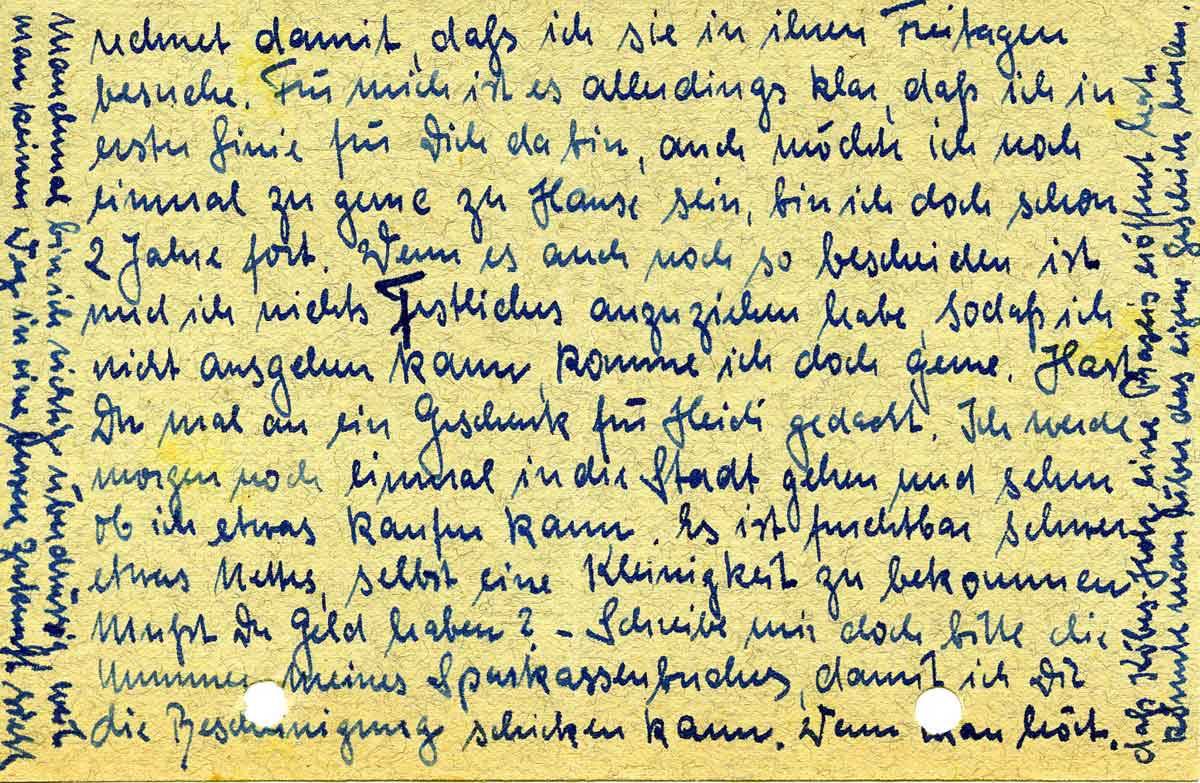 rechnet damit, daß ich sie in ihnen Freitagen
besuche. Für mich ist es allerdings klar, daß ich in
erster Linie für Dich da bin, auch möchte ich noch
einmal zu gerne zu Hause sein, bin ich doch schon
2 Jahre fort. Wenn es auch noch so bescheiden ist
und ich nichts Festliches anzuziehen habe, sodaß ich
nicht ausgehen kann, komme ich doch gerne. Hast
Du mal an ein Geschenk für Heidi gedacht. Ich werde
morgen noch einmal in die Stadt gehen und sehen
ob ich etwas kaufen kann. Es ist furchtbar schwer
etwas Nettes, selbst eine Kleinigkeit zu bekommen
Mußt Du Geld haben? – Schreibe mir doch bitte die
Nummer meines Sparkassenbuches, damit ich Dir
die Bescheinigung schicken kann. Wenn man hört,
daß Köbus-Jork eine Praxis eröffnet hat,
könnte man über das eigene Geschick heulen.
Manchmal bin ich richtig überdrüssig, weil
man keinen Weg in eine Zukunft sieht